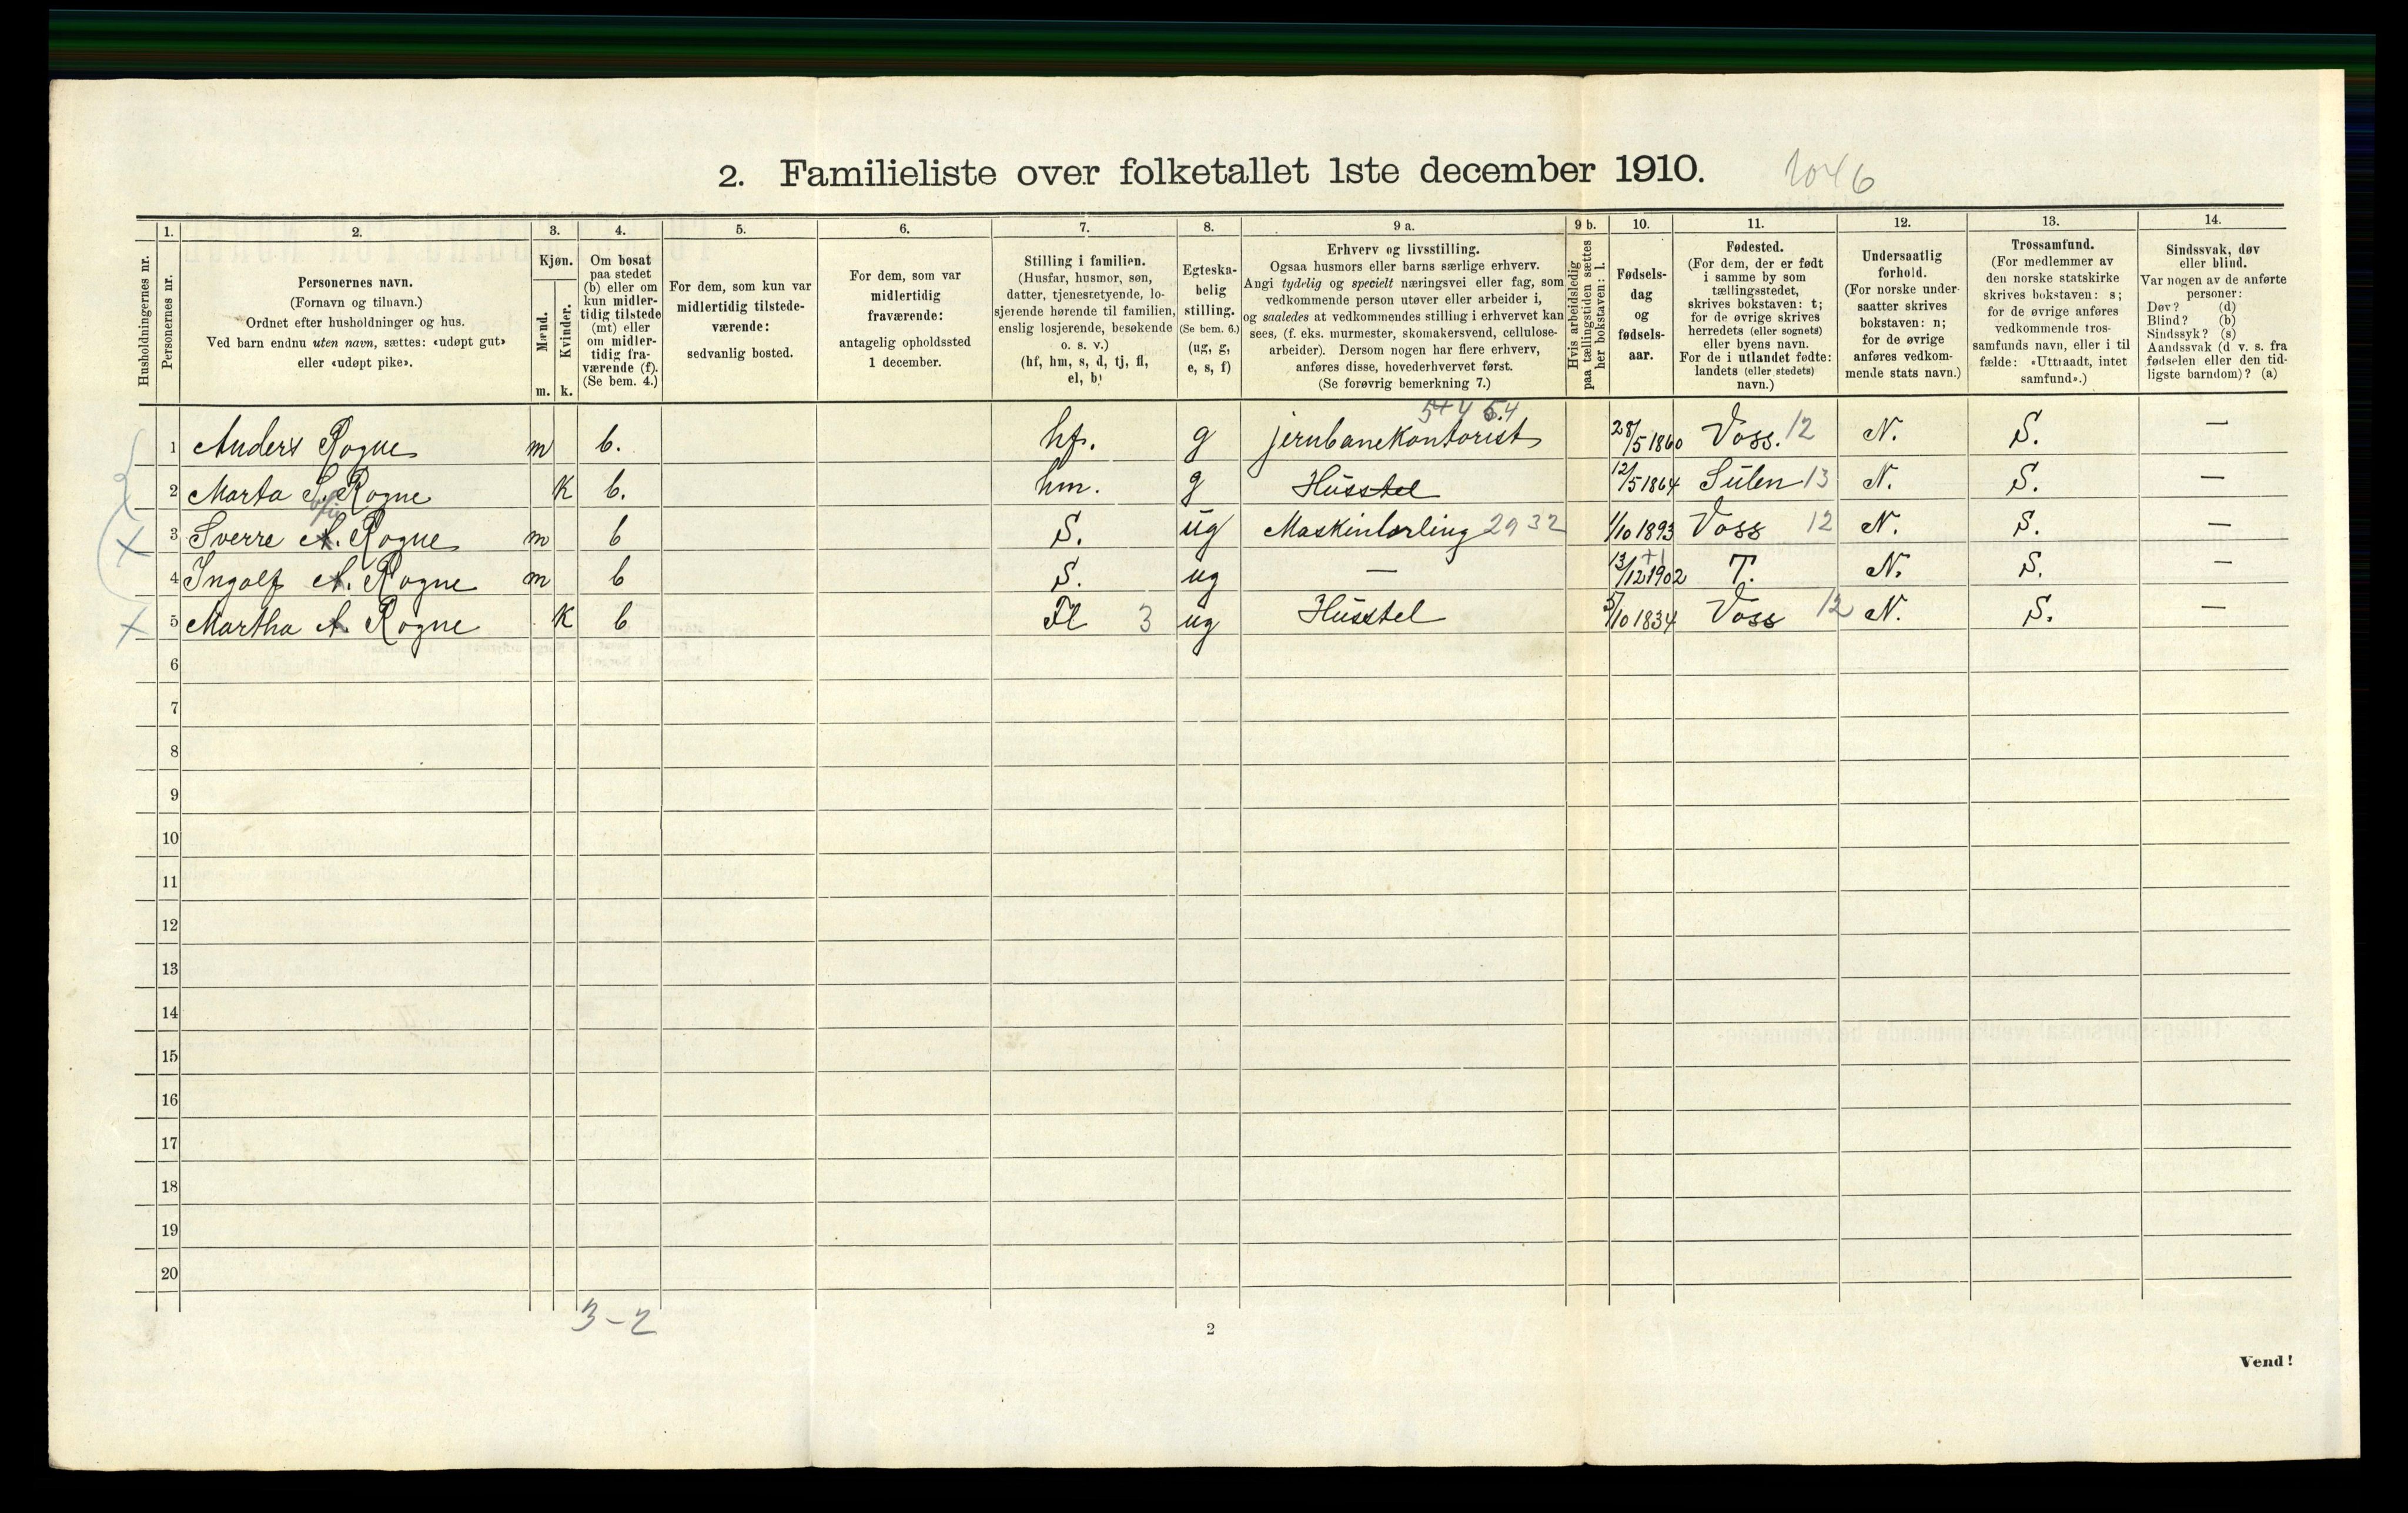 2. Familieliste over folketallet 1ste december 1910. 1046
Husholdningernes nr.
1. Personernes nr.
2. Personernes navn. (Fornavn og tilnavn.) Ordnet efter husholdninger og hus. Ved barn endnu uten navn, sættes: «udøpt gut» eller «udøpt pike».
3. Kjøn. Mænd. m. Kvinder. k.
4. Om bosat paa stedet (b) eller om kun midlertidig tilstede (mt) eller om midlertidig fraværende (f). (Se bem. 4.)
5. For dem, som kun var midlertidig tilstedeværende: sedvanlig bosted.
6. For dem, som var midlertidig fraværende: antagelig opholdssted 1 december.
7. Stilling i familien. (Husfar, husmor, søn, datter, tjenestetyende, losjerende hørende til familien, enslig losjerende, besøkende o. s. v.) (hf, hm, s, d, tj, fl, el, b)
8. Egteskabelig stilling. (Se bem. 6.) (ug, g, e, s, f)
9 a. Erhverv og livsstilling. Ogsaa husmors eller barns særlige erhverv. Angi tydelig og specielt næringsvei eller fag, som vedkommende person utøver eller arbeider i, og saaledes at vedkommendes stilling i erhvervet kan sees, (f. eks. murmester, skomakersvend, cellulosearbeider). Dersom nogen har flere erhverv, anføres disse, hovederhvervet først. (Se forøvrig bemerkning 7.)
9 b. Hvis arbeidsledig paa tællingstiden sættes her bokstaven: l.
10. Fødselsdag og fødselsaar.
11. Fødested. (For dem, der er født i samme by som tællingsstedet, skrives bokstaven: t; for de øvrige skrives herredets (eller sognets) eller byens navn. For de i utlandet fødte: landets (eller stedets) navn.)
12. Undersaatlig forhold. (For norske undersaatter skrives bokstaven: n; for de øvrige anføres vedkommende stats navn.)
13. Trossamfund. (For medlemmer av den norske statskirke skrives bokstaven: s; for de øvrige anføres vedkommende trossamfunds navn, eller i tilfælde: «Uttraadt, intet samfund».)
14. Sindssvak, døv eller blind. Var nogen av de anførte personer: Døv? (d) Blind? (b) Sindssyk? (s) Aandssvak (d. v. s. fra fødselen eller den tidligste barndom)? (a)
1 Anders Rogne m b. hf. g jernbanekontorist 28/5 1860 Voss. 12 N. S. —
2 Marta S. Rogne K b. hm. g Husstel 12/5 1864 Sulen 13 N. S. —
3 Sverre A. Rogne m b S. ug Maskinlærling 2932 1/10 1893 Voss 12 N. S. —
4 Ingolf A. Rogne m b S. ug — 13/12 1902 T. N. S. —
5 Martha A. Rogne K b Fl 3 ug Husstel 5/10 1834 Voss 12 N. S. —
6
7
8
9
10
11
12
13
14
15
16
17
18
19
20
3-2
2
Vend!